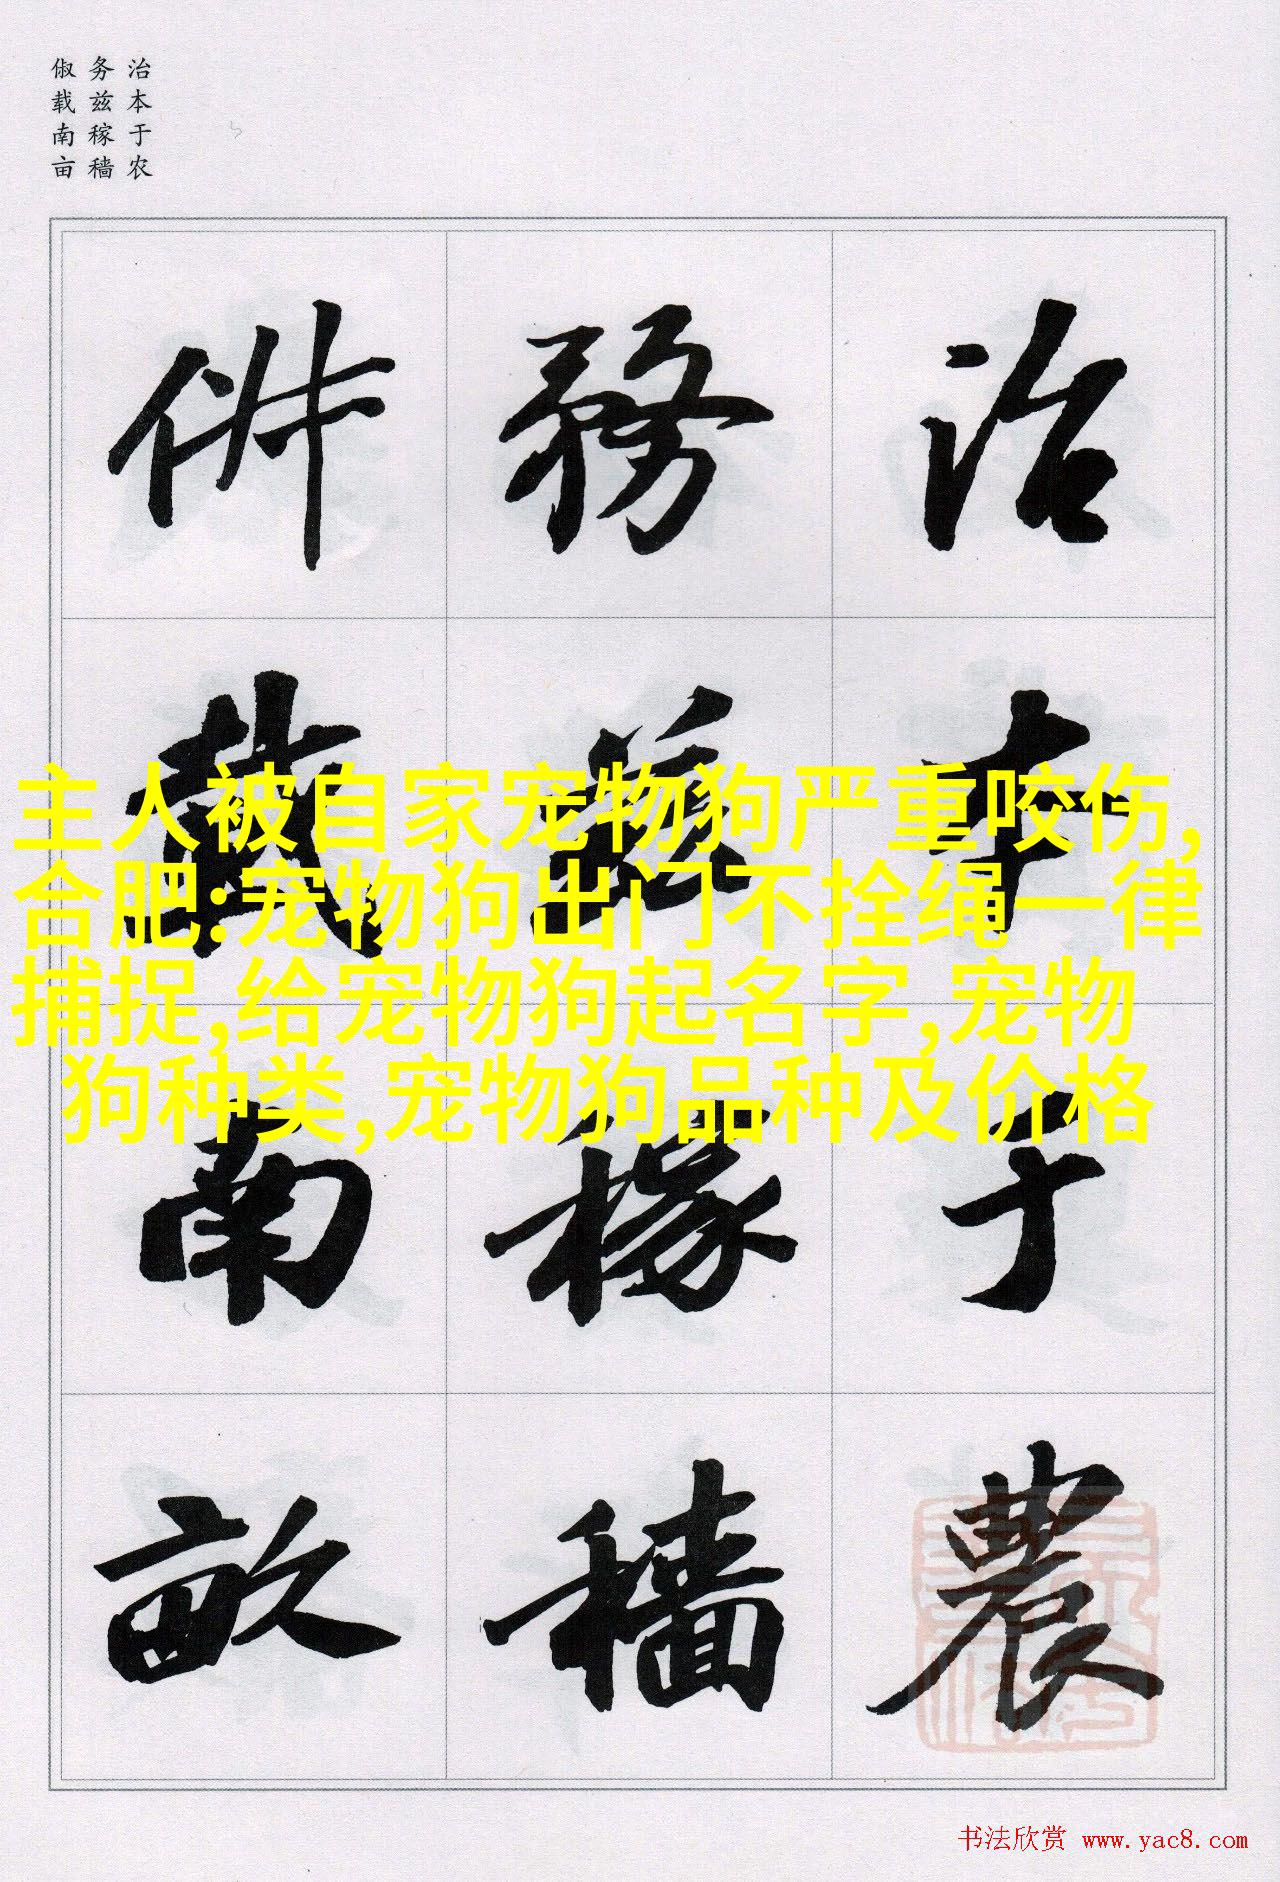 治本于农
务兹稼穑
俶载南亩
治本于農
務兹稼穡
俶載南畝
主人被自家宠物狗严重咬伤,
合肥:宠物狗出门不拴绳一律
捕捉,给宠物狗起名字,宠物
狗种类,宠物狗品种及价格
书法欣赏 www.yac8.com